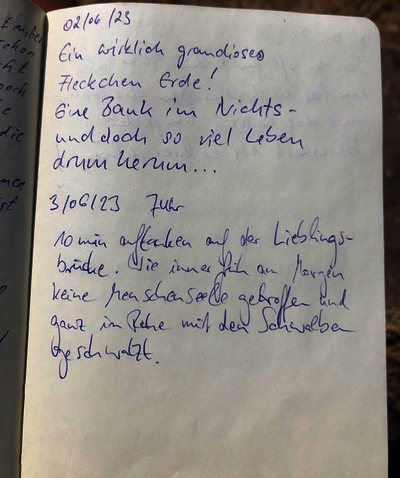 02/06/23
Ein wirklich grandioses
Fleckchen Erde!
Eine Bank im Nichts-
und doch so viel Leben
drum herum...
3/06/23 7 Uhr
10 min auftanken auf der Lieblings-
brücke. Wie immer früh am Morgen
keine Menschenseele getroffen und
ganz in Ruhe mit den Schwalben
geschwatzt.